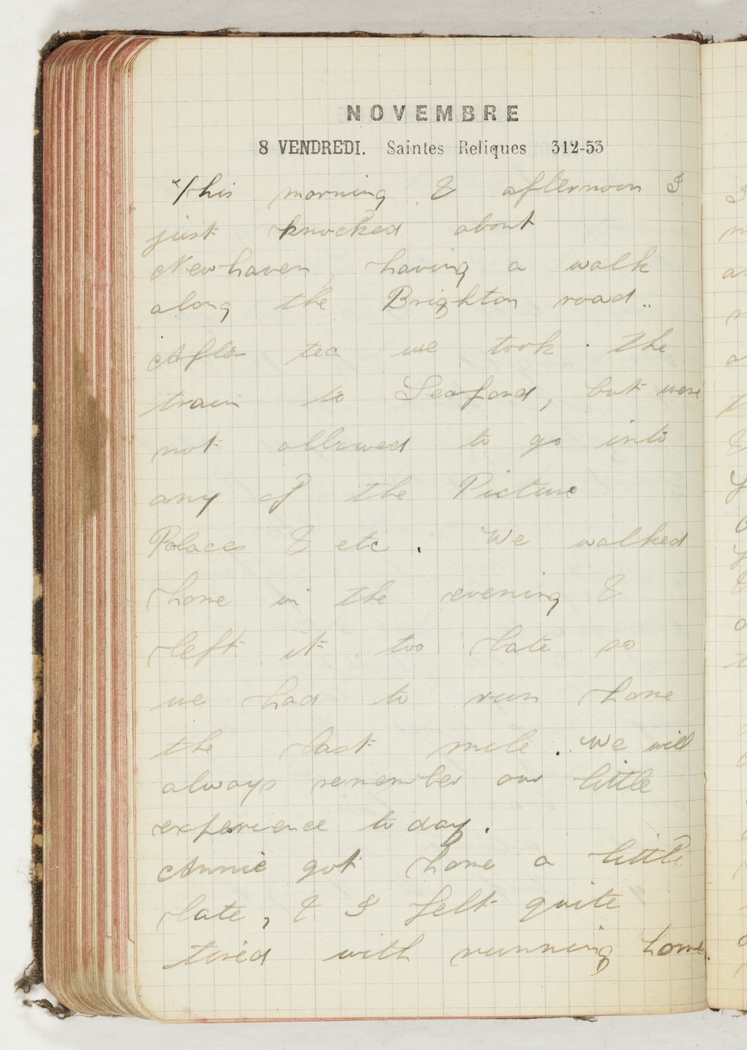 NOVEMBRE
8 VENDREDI. Saintes Reliques 312-53
This morning & afternoon I
just knocked about
Newhaven, having a walk
along the Brighton road..
After tea we took the
train to Seaford, but were
not allowed to go into
any of the Picture
Palaces & etc. We walked
home in the evening &
left it too late so
we had to run home
the last mile. We will
always remember our little
experience today.
Annie got home a little
late, & I felt quite
tired with running home.